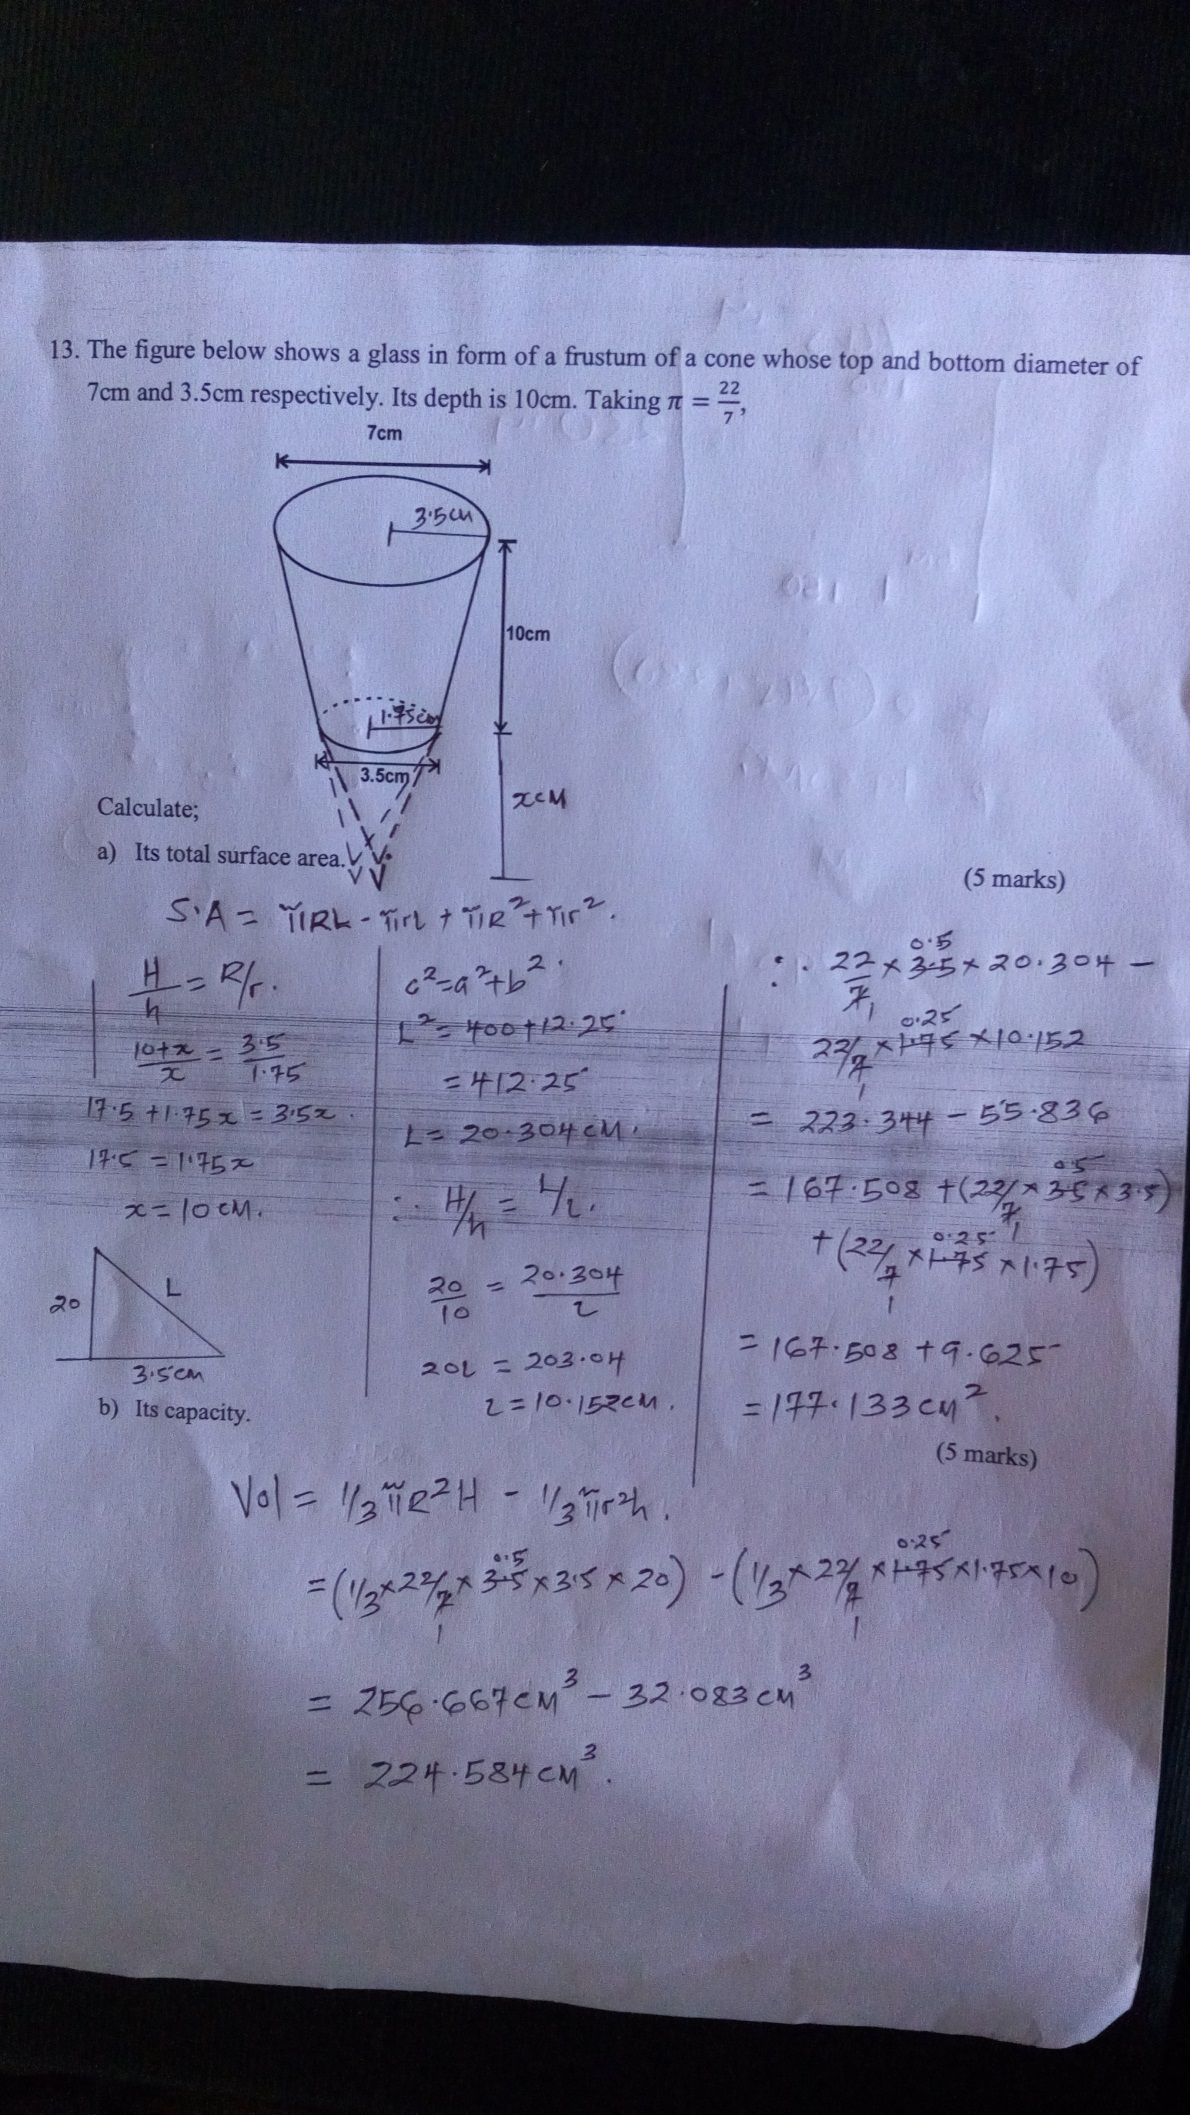 13. The figure below shows a glass in form of a frustum of a cone whose top and bottom diameter of
7cm and 3.5cm respectively. Its depth is 10cm. Taking π = 22/7,
7cm
3.5cm
10cm
1.75cm
3.5cm
xcm
Calculate;
a) Its total surface area.
(5 marks)
S.A = πRL - πrl + πR² + πr².
H/h = R/r.
10+x/x = 3.5/1.75
17.5 + 1.75x = 3.5x.
17.5 = 1.75x
x = 10cm.
20
L
3.5cm
c² = a² + b².
L² = 400 + 12.25
= 412.25
L = 20.304cm.
∴ H/h = L/l.
20/10 = 20.304/l
20l = 203.04
l = 10.152cm.
∴ 22/7 × 3.5 × 20.304 -
0.5
1
22/7 × 1.75 × 10.152
0.25
1
= 223.344 - 55.836
= 167.508 + (22/7 × 3.5 × 3.5)
0.5
1
+ (22/7 × 1.75 × 1.75)
0.25
1
= 167.508 + 9.625
= 177.133cm².
b) Its capacity.
(5 marks)
Vol = 1/3πR²H - 1/3πr²h.
= (1/3 × 22/7 × 3.5 × 3.5 × 20) - (1/3 × 22/7 × 1.75 × 1.75 × 10)
0.5
0.25
1
1
= 256.667cm³ - 32.083cm³
= 224.584cm³.